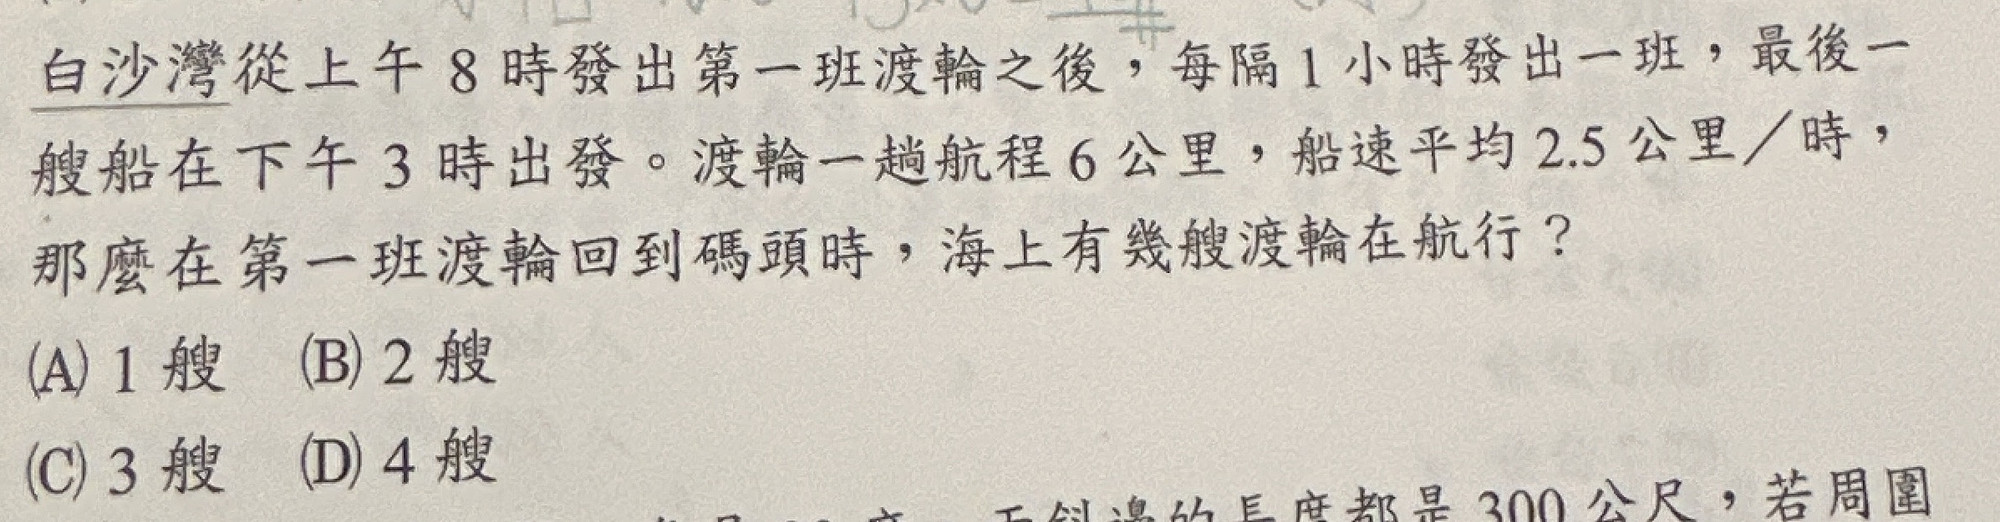 白沙灣從上午8時發出第一班渡輪之後，每隔1小時發出一班，最後一
艘船在下午3時出發。渡輪一趟航程6公里，船速平均2.5公里／時，
那麼在第一班渡輪回到碼頭時，海上有幾艘渡輪在航行？
(A) 1 艘 (B) 2 艘
(C) 3 艘 (D) 4 艘
斜邊的長度都是300公尺，若周圍